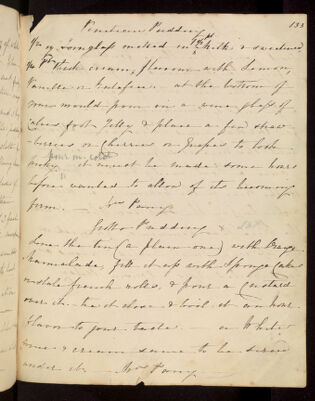 133
Venetian Pudding
Isinglass melted in Milk & sweetened
thick cream, flavour with Lemon,
Vanilla or Ratafia. at the bottom of
your mould pour in a wine glass of
Calves foot Jelly & place a few straw-
berries or Cherries or Grapes to look
pour in cold
pretty it must be made some hours
before wanted to allow of its becoming
firm. Mrs
Pudding
Line the tin (a plain one) with
Marmalade, fill it up with Sponge Cake
or stale french rolls, & pour a Custard
over it. tie it close & boil it an hour
flavor to your taste. a White
& cream sauce to be served
under it. Mrs